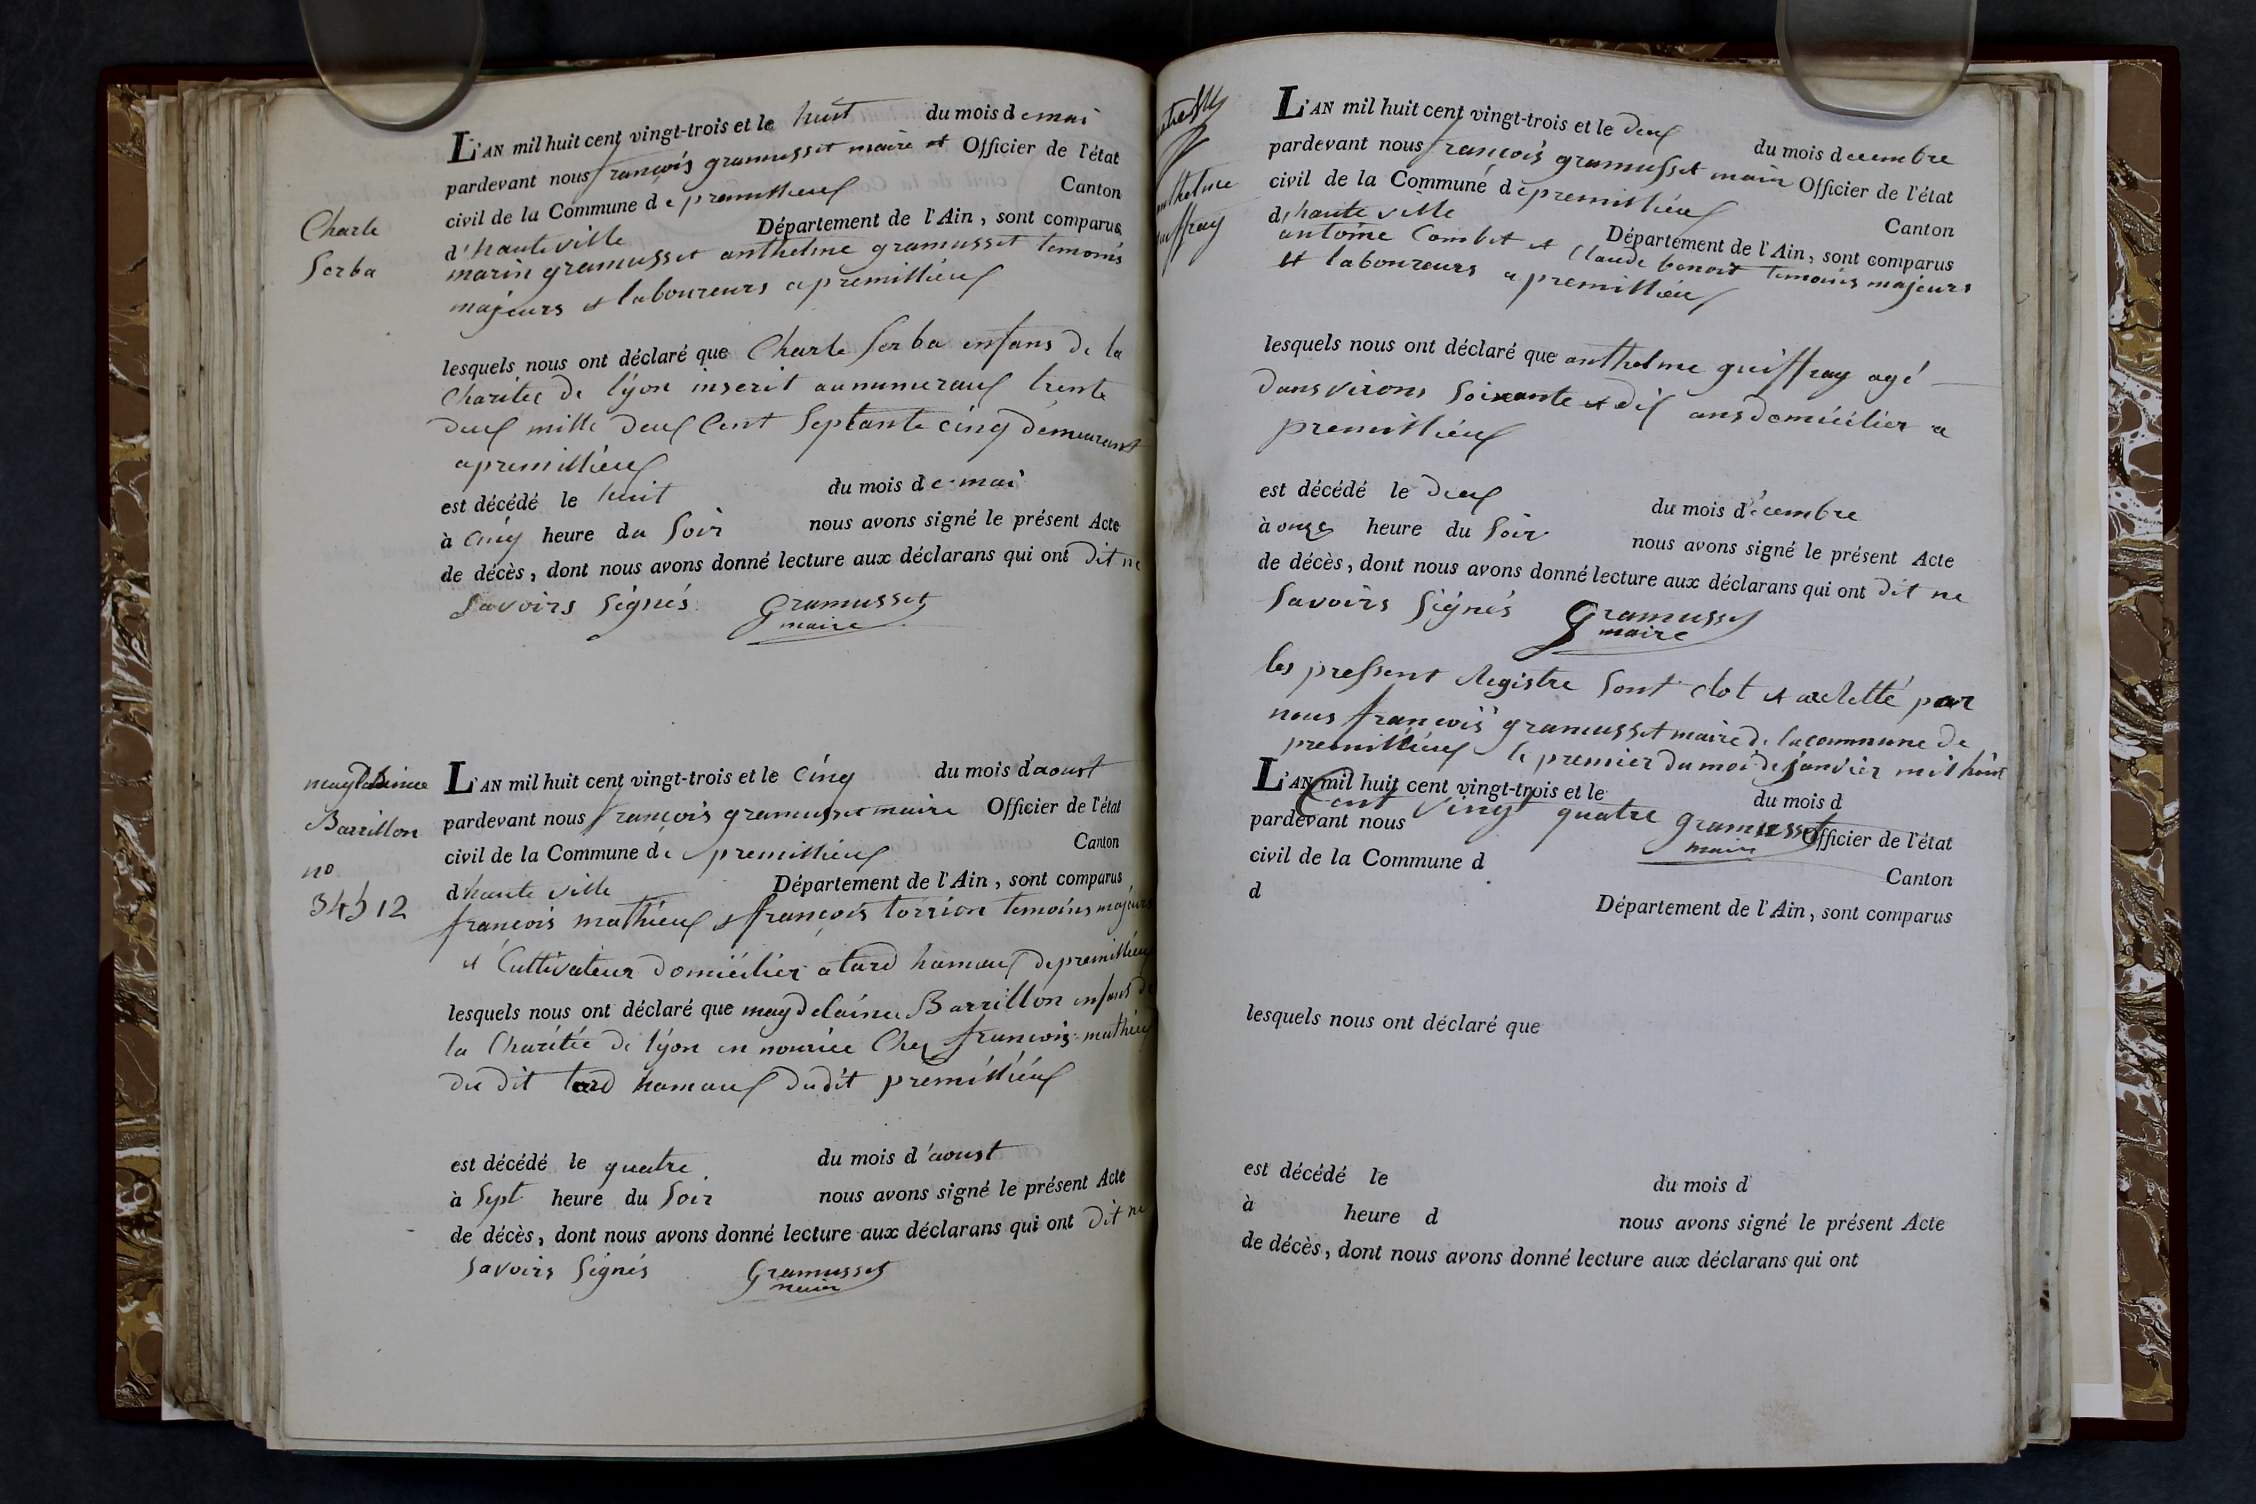 Charle
Serba
L'AN mil huit cent vingt-trois et le huit du mois de mai
pardevant nous françois gramusset maire et Officier de l'état
civil de la Commune de premillieux Canton
d'hauteville Département de l'Ain, sont comparus
marin gramusset anthelme gramusset temoins
majeurs et laboureurs a premillieux
lesquels nous ont déclaré que Charle Serba enfans de la
Charitée de lyon inscrit au numeraux trente
deux mille deux Cent Septante cinq demeurant
a premillieux
est décédé le huit du mois de mai
à Cinq heure du Soir nous avons signé le présent Acte
de décès, dont nous avons donné lecture aux déclarans qui ont dit ne
Savoirs Signés Gramusset
maire
Barrillon
no
L'AN mil huit cent vingt-trois et le Cinq du mois d'aoust
pardevant nous françois gramusset maire Officier de l'état
civil de la Commune de premillieux Canton
dhauteville Département de l'Ain, sont comparus
françois mathieux et françois torrion temoins majeurs
et Cultivateur domicilier a tard hamaux de premillieux
lesquels nous ont déclaré que maydelaine Barrillon enfans de
la Charitée de lyon en nourice Chez françois mathieux
du dit tard hamaux dudit premillieux
est décédé le quatre du mois d'aoust
à Sept heure du Soir nous avons signé le présent Acte
de décès, dont nous avons donné lecture aux déclarans qui ont dit ne
Savoirs Signés Gramusset
maire
L'AN mil huit cent vingt-trois et le deux du mois decembre
pardevant nous françois gramusset maire Officier de l'état
civil de la Commune de premillieux Canton
d'hauteville Département de l'Ain, sont comparus
antoine Combet et Claude benoit temoins majeurs
et laboureurs a premillieux
lesquels nous ont déclaré que anthelme guiffray agé
danvirons Soixante et dix ans domicilier a
premillieux
est décédé le deux du mois d'ecembre
à onze heure du Soir nous avons signé le présent Acte
de décès, dont nous avons donné lecture aux déclarans qui ont dit ne
Savoirs Signés Gramusset
maire
les pressent Registre Sont clot et par
nous françois gramusset maire de la commune de
premillieux le premier du moi de janvier mil huit
Cent vingt quatre gramusset
maire
L'AN mil huit cent vingt-trois et le du mois d
pardevant nous Officier de l'état
civil de la Commune d Canton
d Département de l'Ain, sont comparus
lesquels nous ont déclaré que
est décédé le du mois d
à heure d nous avons signé le présent Acte
de décès, dont nous avons donné lecture aux déclarans qui ont